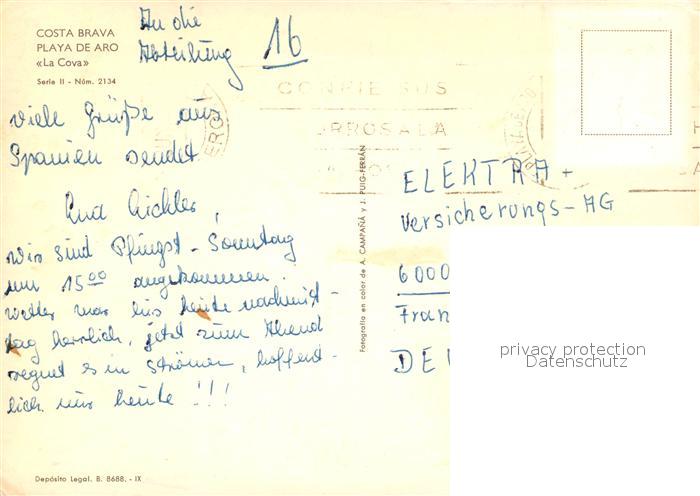 COSTA BRAVA
PLAYA DE ARO
«La Cova»
Serie II - Núm. 2134
An die
Abteilung 16
viele Grüße aus
Spanien sendet
wir sind Pfingst-Sonntag
um 15⁰⁰ angekommen.
Wetter war bis heute nachmit-
tag herrlich, jetzt zum Abend
regnet es in Strömen, hoffent-
lich nur heute !!!
Depósito Legal. B. 8688. - IX
Fotografía en color de A. CAMPAÑÁ y J. PUIG-FERRÁN
CONFIE SUS
ELEKTRA +
Versicherungs-AG
6000
Fran
DE
privacy protection
Datenschutz